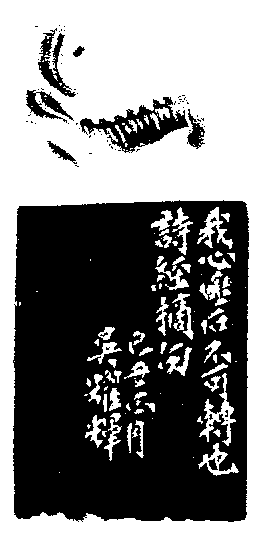 我心匪石不可轉也
詩經摘句
己丑六月
吳耀輝